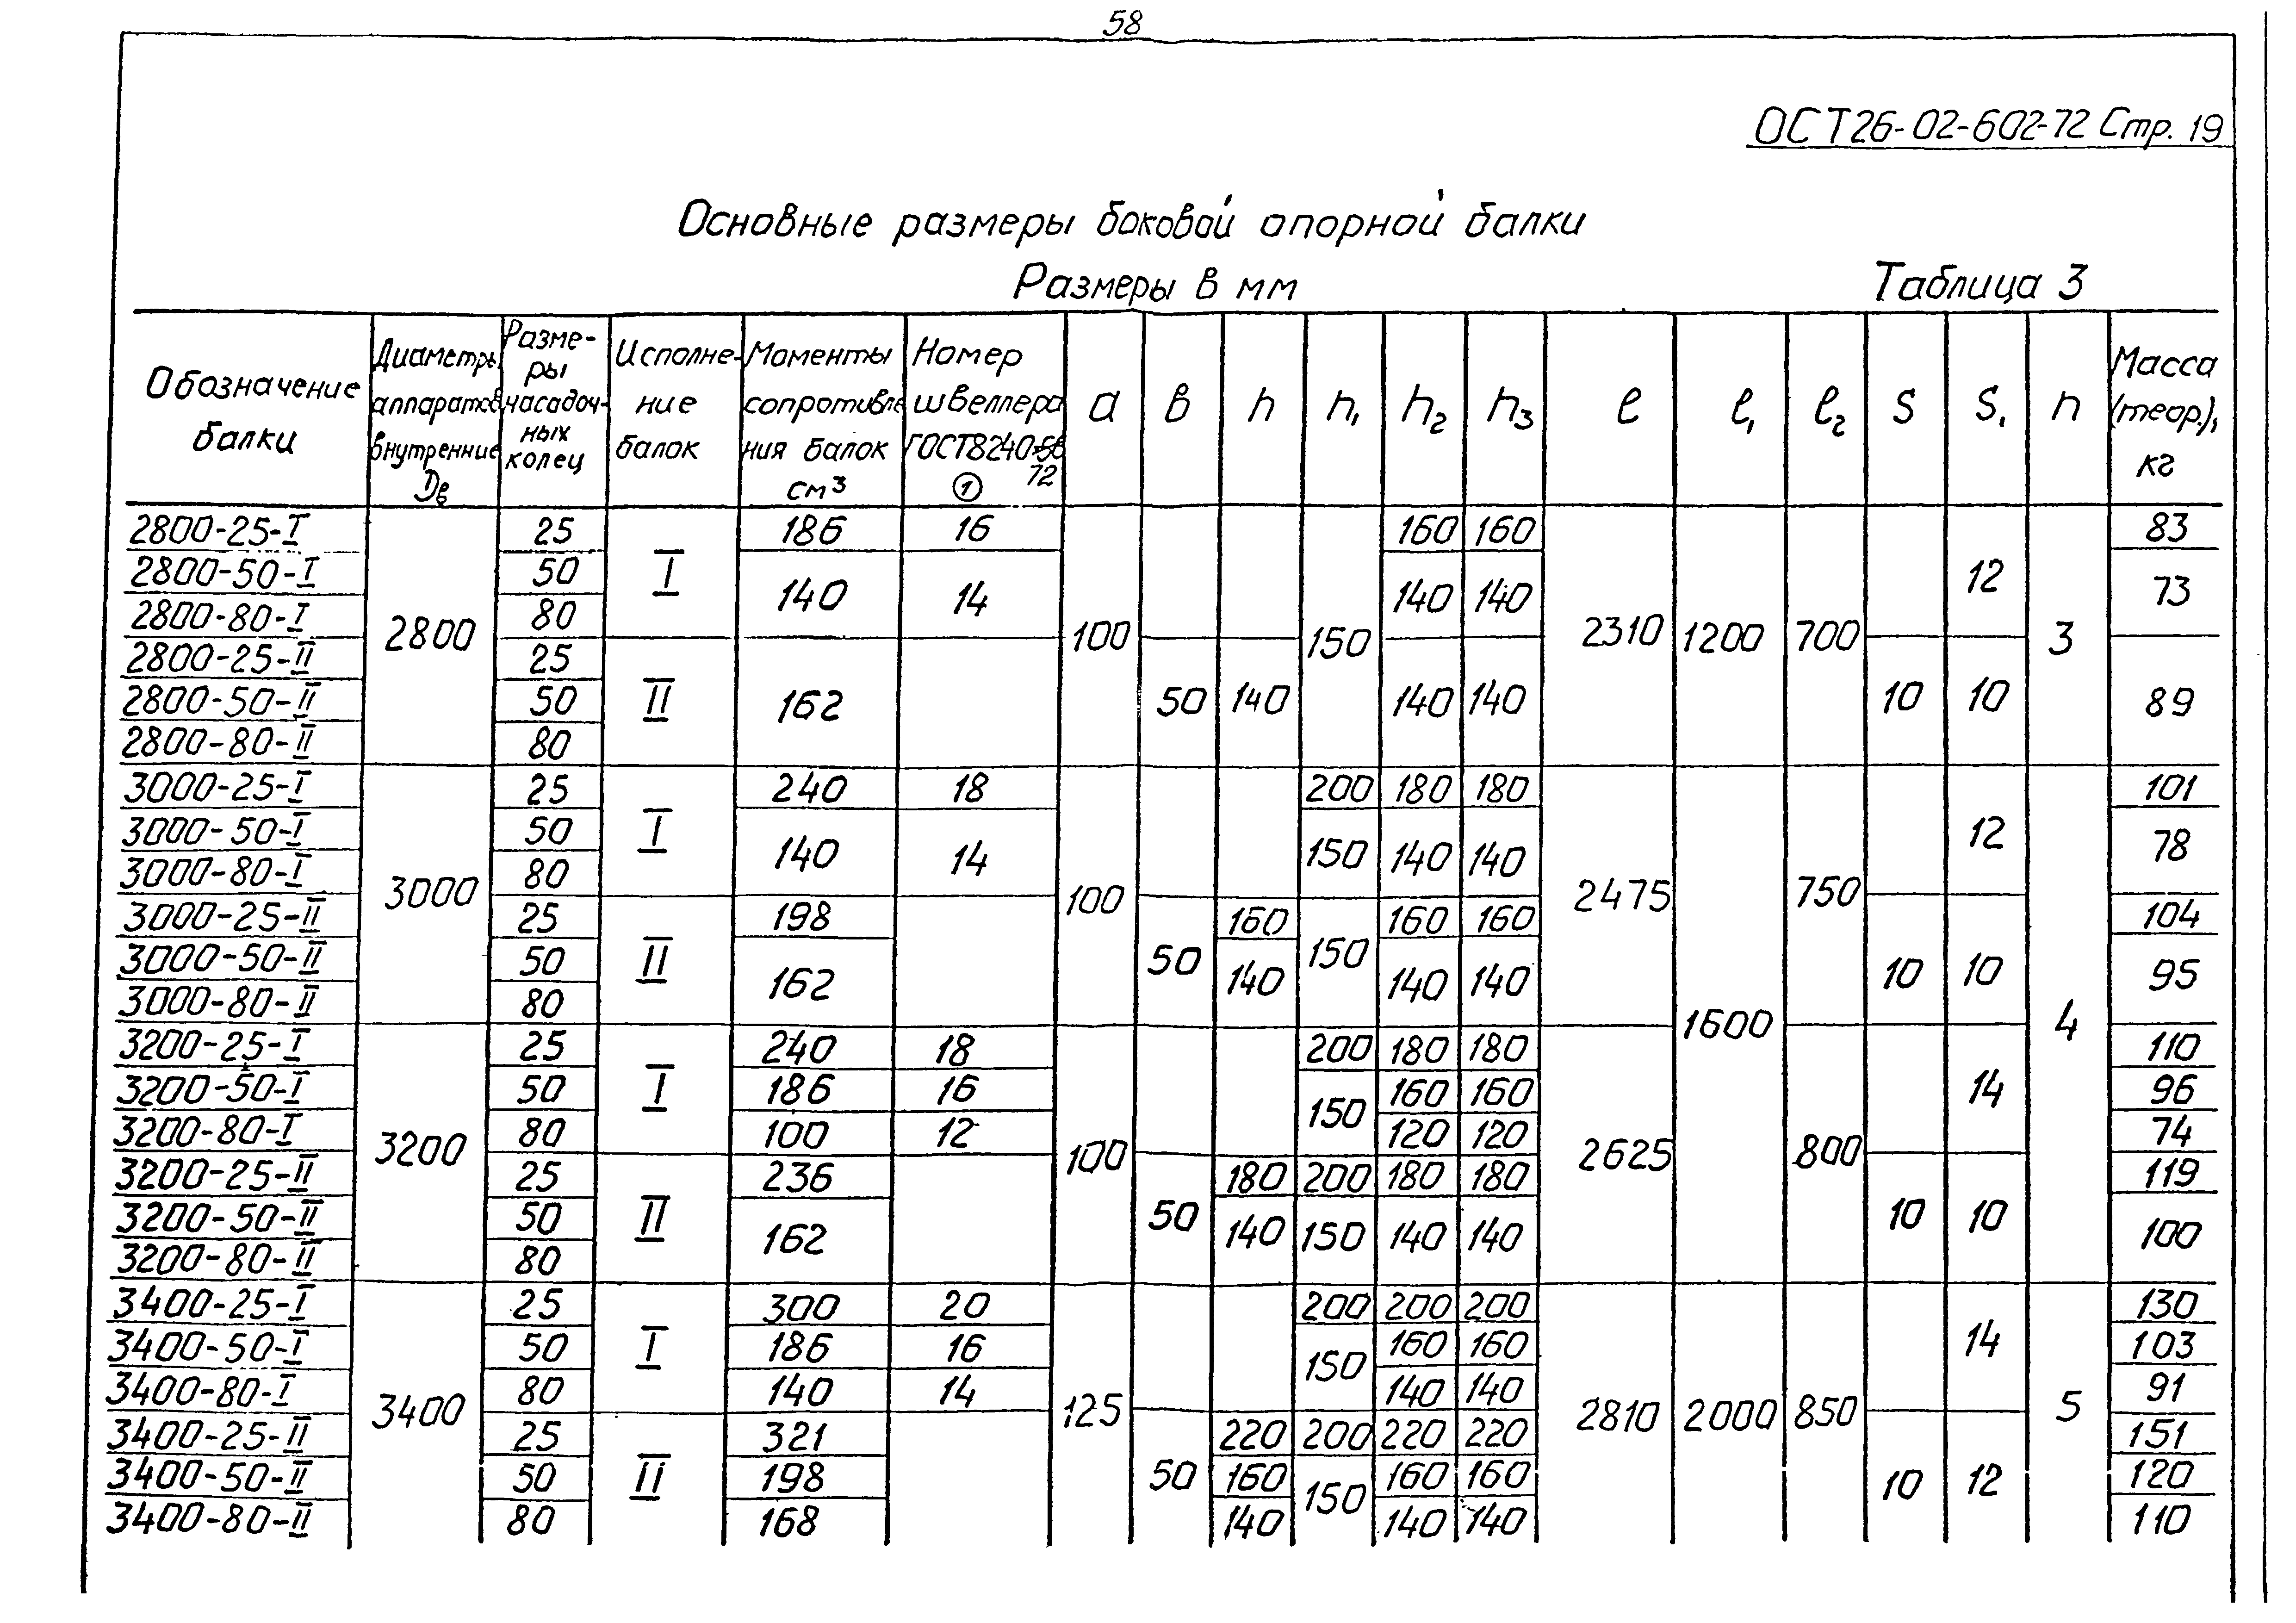 58
ОСТ26-02-602-72 Стр. 19
Основные размеры боковой опорной балки
Размеры в мм Таблица 3
Обозначение балки | Диаметры аппаратов внутренние Dв | Разме-ры насадоч-ных колец | Исполне-ние балок | Моменты сопротивле ния балок см³ | Номер швеллера ГОСТ8240-56 72 ① | а | в | h | h₁ | h₂ | h₃ | ℓ | ℓ₁ | ℓ₂ | S | S₁ | n | Масса (теор.), кг
2800-25-I | 2800 | 25 | I | 186 | 16 | 100 | | | 150 | 160 | 160 | 2310 | 1200 | 700 | | 12 | 3 | 83
2800-50-I | 50 | 140 | 14 | 140 | 140 | 73
2800-80-I | 80
2800-25-II | 25 | II | 162 | | 50 | 140 | 140 | 140 | 10 | 10 | 89
2800-50-II | 50
2800-80-II | 80
3000-25-I | 3000 | 25 | I | 240 | 18 | 100 | | | 200 | 180 | 180 | 2475 | 1600 | 750 | | 12 | 4 | 101
3000-50-I | 50 | 140 | 14 | 150 | 140 | 140 | 78
3000-80-I | 80
3000-25-II | 25 | II | 198 | | 50 | 160 | 150 | 160 | 160 | 10 | 10 | 104
3000-50-II | 50 | 162 | 140 | 140 | 140 | 95
3000-80-II | 80
3200-25-I | 3200 | 25 | I | 240 | 18 | 100 | | | 200 | 180 | 180 | 2625 | 800 | | 14 | 110
3200-50-I | 50 | 186 | 16 | 150 | 160 | 160 | 96
3200-80-I | 80 | 100 | 12 | 120 | 120 | 74
3200-25-II | 25 | II | 236 | | 50 | 180 | 200 | 180 | 180 | 10 | 10 | 119
3200-50-II | 50 | 162 | 140 | 150 | 140 | 140 | 100
3200-80-II | 80
3400-25-I | 3400 | 25 | I | 300 | 20 | 125 | | | 200 | 200 | 200 | 2810 | 2000 | 850 | | 14 | 5 | 130
3400-50-I | 50 | 186 | 16 | 150 | 160 | 160 | 103
3400-80-I | 80 | 140 | 14 | 140 | 140 | 91
3400-25-II | 25 | II | 321 | | 50 | 220 | 200 | 220 | 220 | 10 | 12 | 151
3400-50-II | 50 | 198 | 160 | 150 | 160 | 160 | 120
3400-80-II | 80 | 168 | 140 | 140 | 140 | 110